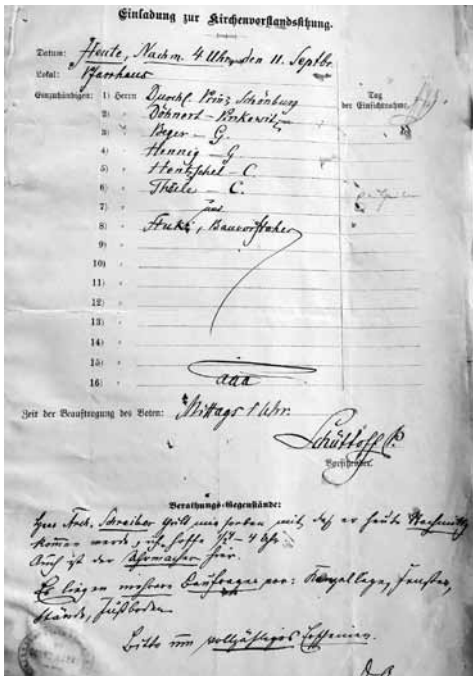 Einladung zur Kirchenvorstandssitzung.
Datum: Heute, Nachm. 4 Uhr, den 11. Septbr.
Lokal: Pfarrhaus
Einzuhändigen: 1) Herrn Durchl. Prinz Schönburg
Tag der Einsichtnahme.
2) " Döhnert – Pinkewitz
3) " Beger – G.
4) " Hennig – G.
5) " Hentzschel – C.
6) " Thiele – C.
7) "
8) " Bauvorsteher
9) "
10) "
11) "
12) "
13) "
14) "
15) "
16) "
Zeit der Beauftragung des Boten: Mittags 1 Uhr.
Schüttoff P.
Vorsitzender.
Berathungs-Gegenstände:
Herr Arch. Schreiber theilt mir soeben mit, daß er heute Nachmittg
kommen werde, ich hoffe 1/2 – 4 Uhr
Auch ist der Uhrmacher hier.
Es liegen mehrere Baufragen vor: Kanzellage, Fenster,
Stände, Fußboden.
Bitte um vollzähliges Erscheinen.